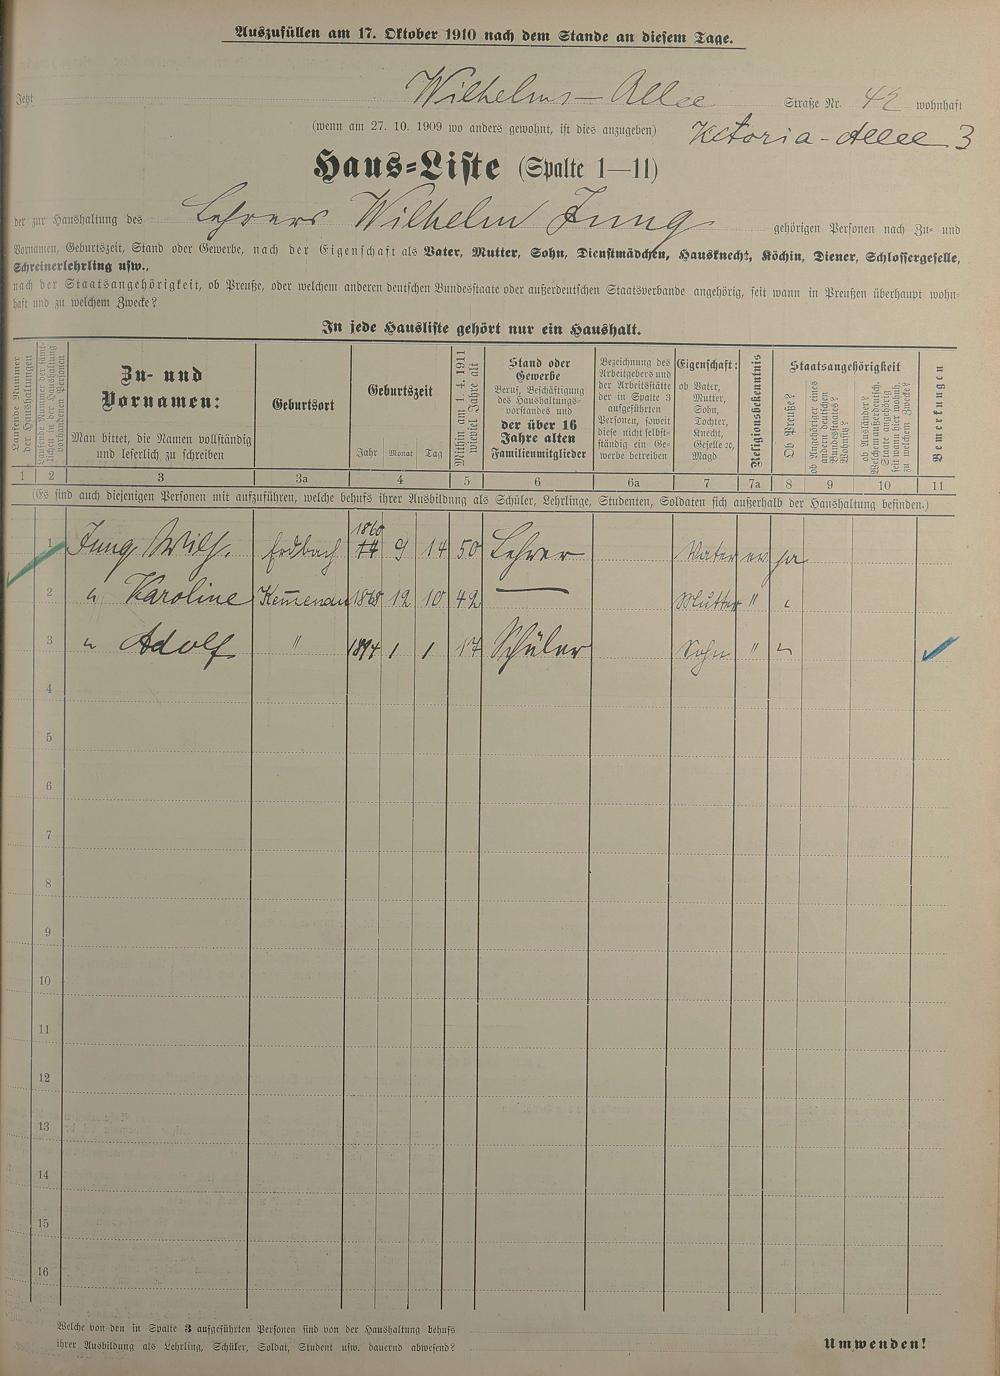 Auszufüllen am 17. Oktober 1910 nach dem Stande an diesem Tage.
Jetzt Wilhelms-Allee Straße Nr. 42 wohnhaft
(wenn am 27. 10. 1909 wo anders gewohnt, ist dies anzugeben) Victoria-Allee 3
Haus-Liste (Spalte 1—11)
der zur Haushaltung des Lehrers Wilhelm Jung gehörigen Personen nach Zu- und
Vornamen, Geburtszeit, Stand oder Gewerbe, nach der Eigenschaft als Vater, Mutter, Sohn, Dienstmädchen, Hausknecht, Köchin, Diener, Schlossergeselle,
Schreinerlehrling usw.,
nach der Staatsangehörigkeit, ob Preuße, oder welchem anderen deutschen Bundesstaate oder außerdeutschen Staatsverbande angehörig, seit wann in Preußen überhaupt wohn-
haft und zu welchem Zwecke?
In jede Hausliste gehört nur ein Haushalt.
Laufende Nummer
der Haushaltungen
Laufende Nummer der sämt-
lichen in der Haushaltung
vorhandenen Personen
Zu- und
Vornamen:
Man bittet, die Namen vollständig
und leserlich zu schreiben
Geburtsort
Geburtszeit
Jahr Monat Tag
Mithin am 1. 4. 1911
wieviel Jahre alt
Stand oder
Gewerbe
Beruf, Beschäftigung
des Haushaltungs-
vorstandes und
der über 16
Jahre alten
Familienmitglieder
Bezeichnung des
Arbeitgebers und
der Arbeitsstätte
der in Spalte 3
aufgeführten
Personen, soweit
diese nicht selbst-
ständig ein Ge-
werbe betreiben
Eigenschaft:
ob Vater,
Mutter,
Sohn,
Tochter,
Knecht,
Geselle ec,
Magd
Religionsbekenntnis
Staatsangehörigkeit
Ob Preuße?
ob Angehöriger eines
andern deutschen
Bundesstaates?
Wohnsitz?
ob Ausländer?
Welchem außerdeutsch.
Staate angehörig
seit wann hier wohnh.
zu welchem Zwecke?
Bemerkungen
1 2 3 3a 4 5 6 6a 7 7a 8 9 10 11
(Es sind auch diejenigen Personen mit aufzuführen, welche behufs ihrer Ausbildung als Schüler, Lehrlinge, Studenten, Soldaten sich außerhalb der Haushaltung befinden.)
1 Jung Wilh. Erdbach 1860 9 14 50 Lehrer Vater ev ja
2 " Karoline Kemenau 1868 12 10 42 — Mutter " "
3 " Adolf " 1894 1 1 17 Schüler Sohn " "
4
5
6
7
8
9
10
11
12
13
14
15
16
Welche von den in Spalte 3 aufgeführten Personen sind von der Haushaltung behufs
ihrer Ausbildung als Lehrling, Schüler, Soldat, Student usw. dauernd abwesend?
Umwenden!